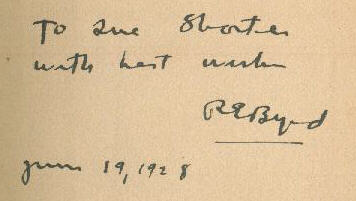 To Sue Shorter
with best wishes
R E Byrd
June 19, 1928